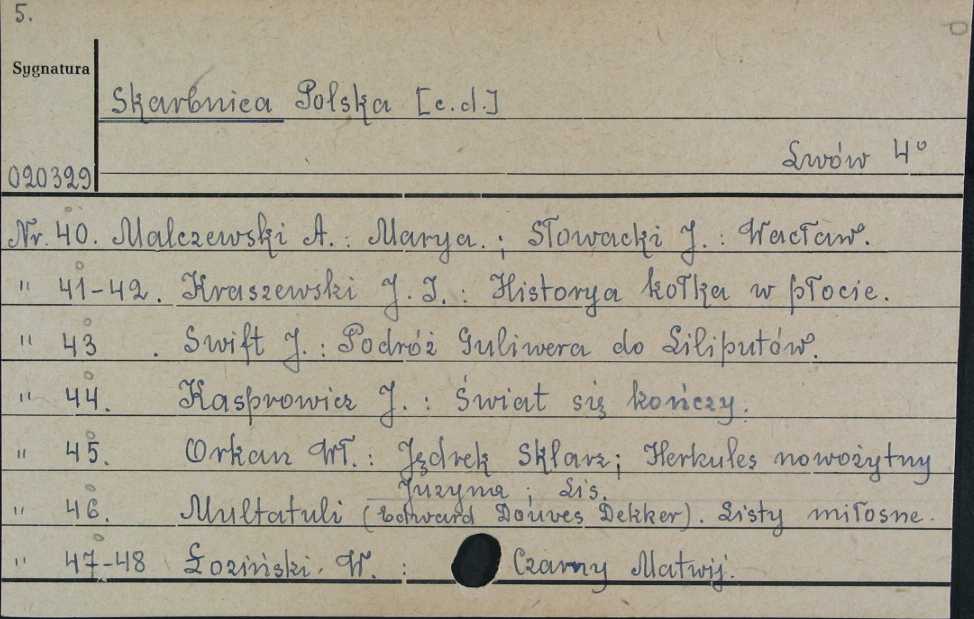 5.
Sygnatura
Skarbnica Polska [c.d.]
Lwów 4°
020329
Nr. 40. Malczewski A. : Marya. ; Słowacki J. : Wacław.
" 41-42. Kraszewski J. I. : Historya kołka w płocie.
" 43 . Swift J. : Podróż Guliwera do Liliputów.
" 44. Kasprowicz J. : Świat się kończy.
" 45. Orkan Wł. : Jędrek Sklarz; Herkules nowożytny
Juzyna ; Lis.
" 46. Multatuli (Edward Douves Dekker). Listy miłosne.
" 47-48 Łoziński W. : Czarny Matwij.